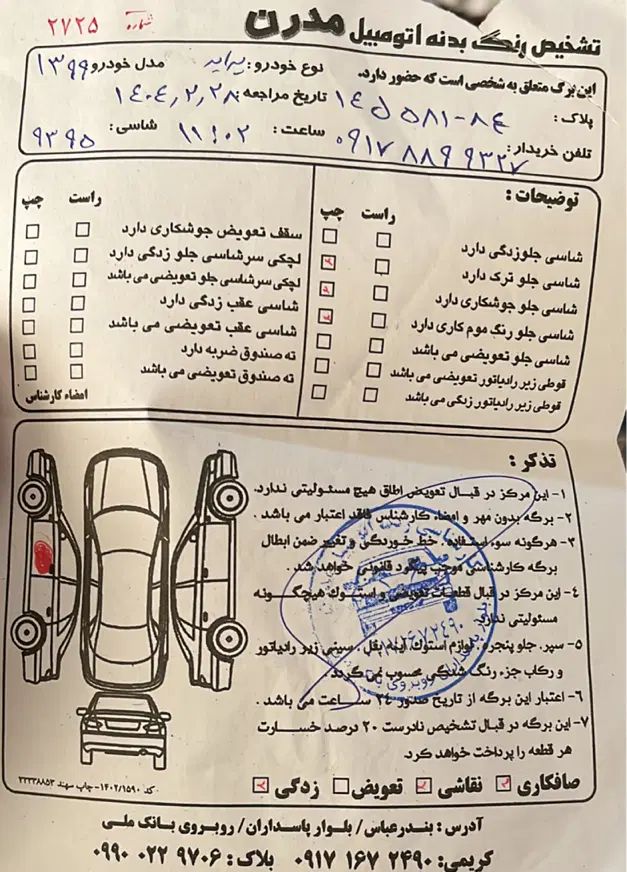 تشخیص رنگ بدنه اتومبیل مدرن
شماره ۲۷۲۵
این برگ متعلق به شخصی است که حضور دارد.
نوع خودرو: پراید مدل خودرو ۱۳۹۹
پلاک: ۸۴-۵۸۱ د ۱۴ تاریخ مراجعه: ۱۴۰۴,۲,۲۸
تلفن خریدار: ۰۹۱۷ ۸۸۹ ۹۳۲۷ ساعت: ۱۱:۰۲ شاسی: ۹۳۹۵
توضیحات:
راست چپ
شاسی جلوزدگی دارد
شاسی جلو ترک دارد
شاسی جلو جوشکاری دارد
شاسی جلو رنگ موم کاری دارد
شاسی جلو تعویضی می باشد
قوطی زیر رادیاتور تعویضی می باشد
قوطی زیر رادیاتور زدگی می باشد
راست چپ
سقف تعویض جوشکاری دارد
لچکی سرشاسی جلو زدگی دارد
لچکی سرشاسی جلو تعویضی می باشد
شاسی عقب زدگی دارد
شاسی عقب تعویضی می باشد
ته صندوق ضربه دارد
ته صندوق تعویضی می باشد
امضاء کارشناس
تذکر:
۱- این مرکز در قبال تعویض اطاق هیچ مسئولیتی ندارد.
۲- برگه بدون مهر و امضاء کارشناس فاقد اعتبار می باشد.
۳- هرگونه سوء استفاده، خط خوردگی و تغییر ضمن ابطال
برگه کارشناسی موجب پیگرد قانونی خواهد شد.
۴- این مرکز در قبال قطعات تعویضی و استوک هیچگونه
مسئولیتی ندارد.
۵- سپر، جلو پنجره، لوازم استوک، آینه بغل، سینی زیر رادیاتور
و رکاب جزء رنگ شدگی محسوب نمی گردد.
۶- اعتبار این برگه از تاریخ صدور ۲۴ ساعت می باشد.
۷- این برگه در قبال تشخیص نادرست ۲۰ درصد خسارت
هر قطعه را پرداخت خواهد کرد.
صافکاری نقاشی تعویض زدگی
کد ۱۴۰۲/۱۵۹۰-چاپ سهند ۳۳۳۳۸۸۵۳
آدرس: بندرعباس/ بلوار پاسداران/ روبروی بانک ملی
کریمی: ۰۹۱۷ ۱۶۷ ۲۴۹۰ بلاک: ۰۹۹۰ ۰۲۲ ۹۷۰۶